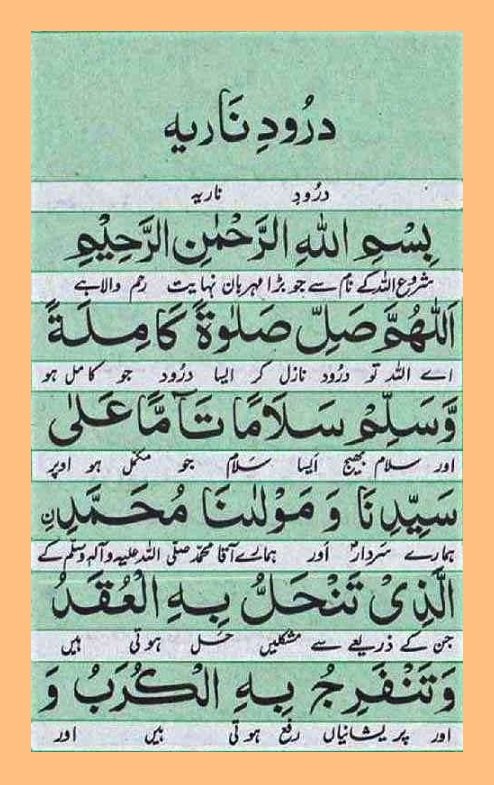 درُودِ نَاریه
درُودِ ناریہ
بِسْمِ اللهِ الرَّحْمٰنِ الرَّحِيْمِ
شروع اللہ کے نام سے جو بڑا مہربان نہایت رحم والا ہے
اَللّٰهُمَّ صَلِّ صَلٰوةً كَامِلَةً
اے اللہ تو درُود نازل کر ایسا درُود جو کامل ہو
وَّسَلِّمْ سَلَامًا تَآمًّا عَلٰى
اور سلام بھیج ایسا سَلام جو مکمل ہو اوپر
سَيِّدِنَا وَ مَوْلٰىنَا مُحَمَّدِنِ
ہمارے سَردار اور ہمارے آقا محمّد صلّی اللہ علیہ وآلہٖ وسلّم کے
الَّذِىْ تَنْحَلُّ بِهِ الْعُقَدُ
جن کے ذریعے سے مشکلیں حَل ہوتی ہیں
وَتَنْفَرِجُ بِهِ الْكُرَبُ وَ
اور پریشانیاں رفع ہوتی ہیں اور